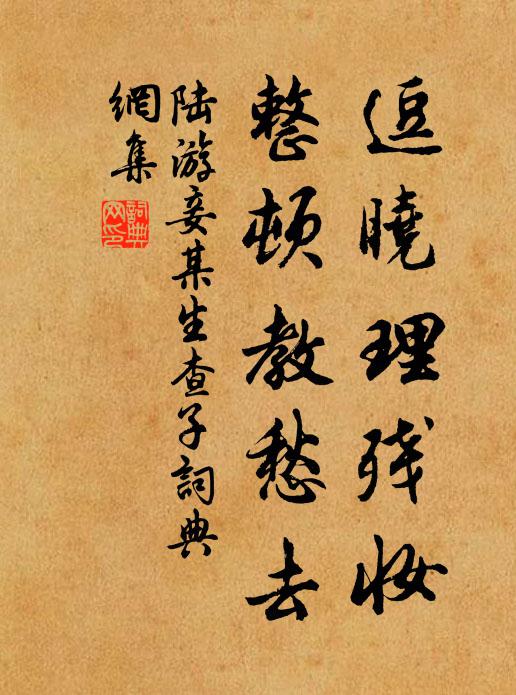 逗曉理残妝
整頓教愁去
陆游妾某生查子詞典
網集
詞典
网印